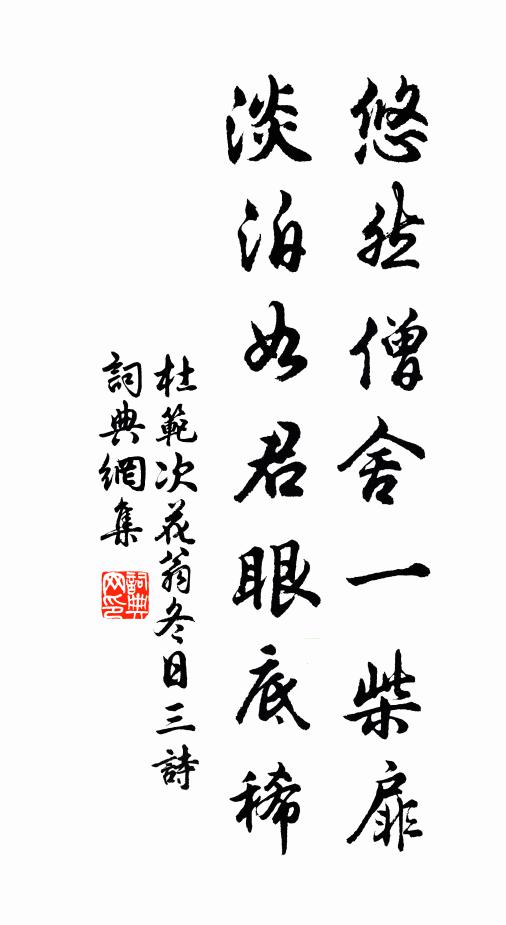 悠然僧舍一柴扉
淡泊如君眼底稀
杜範次花翁冬日三詩
詞典網集
詞典网印